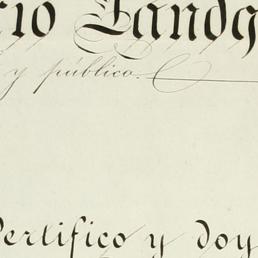 rio Landg
y público.
Certifico y doy